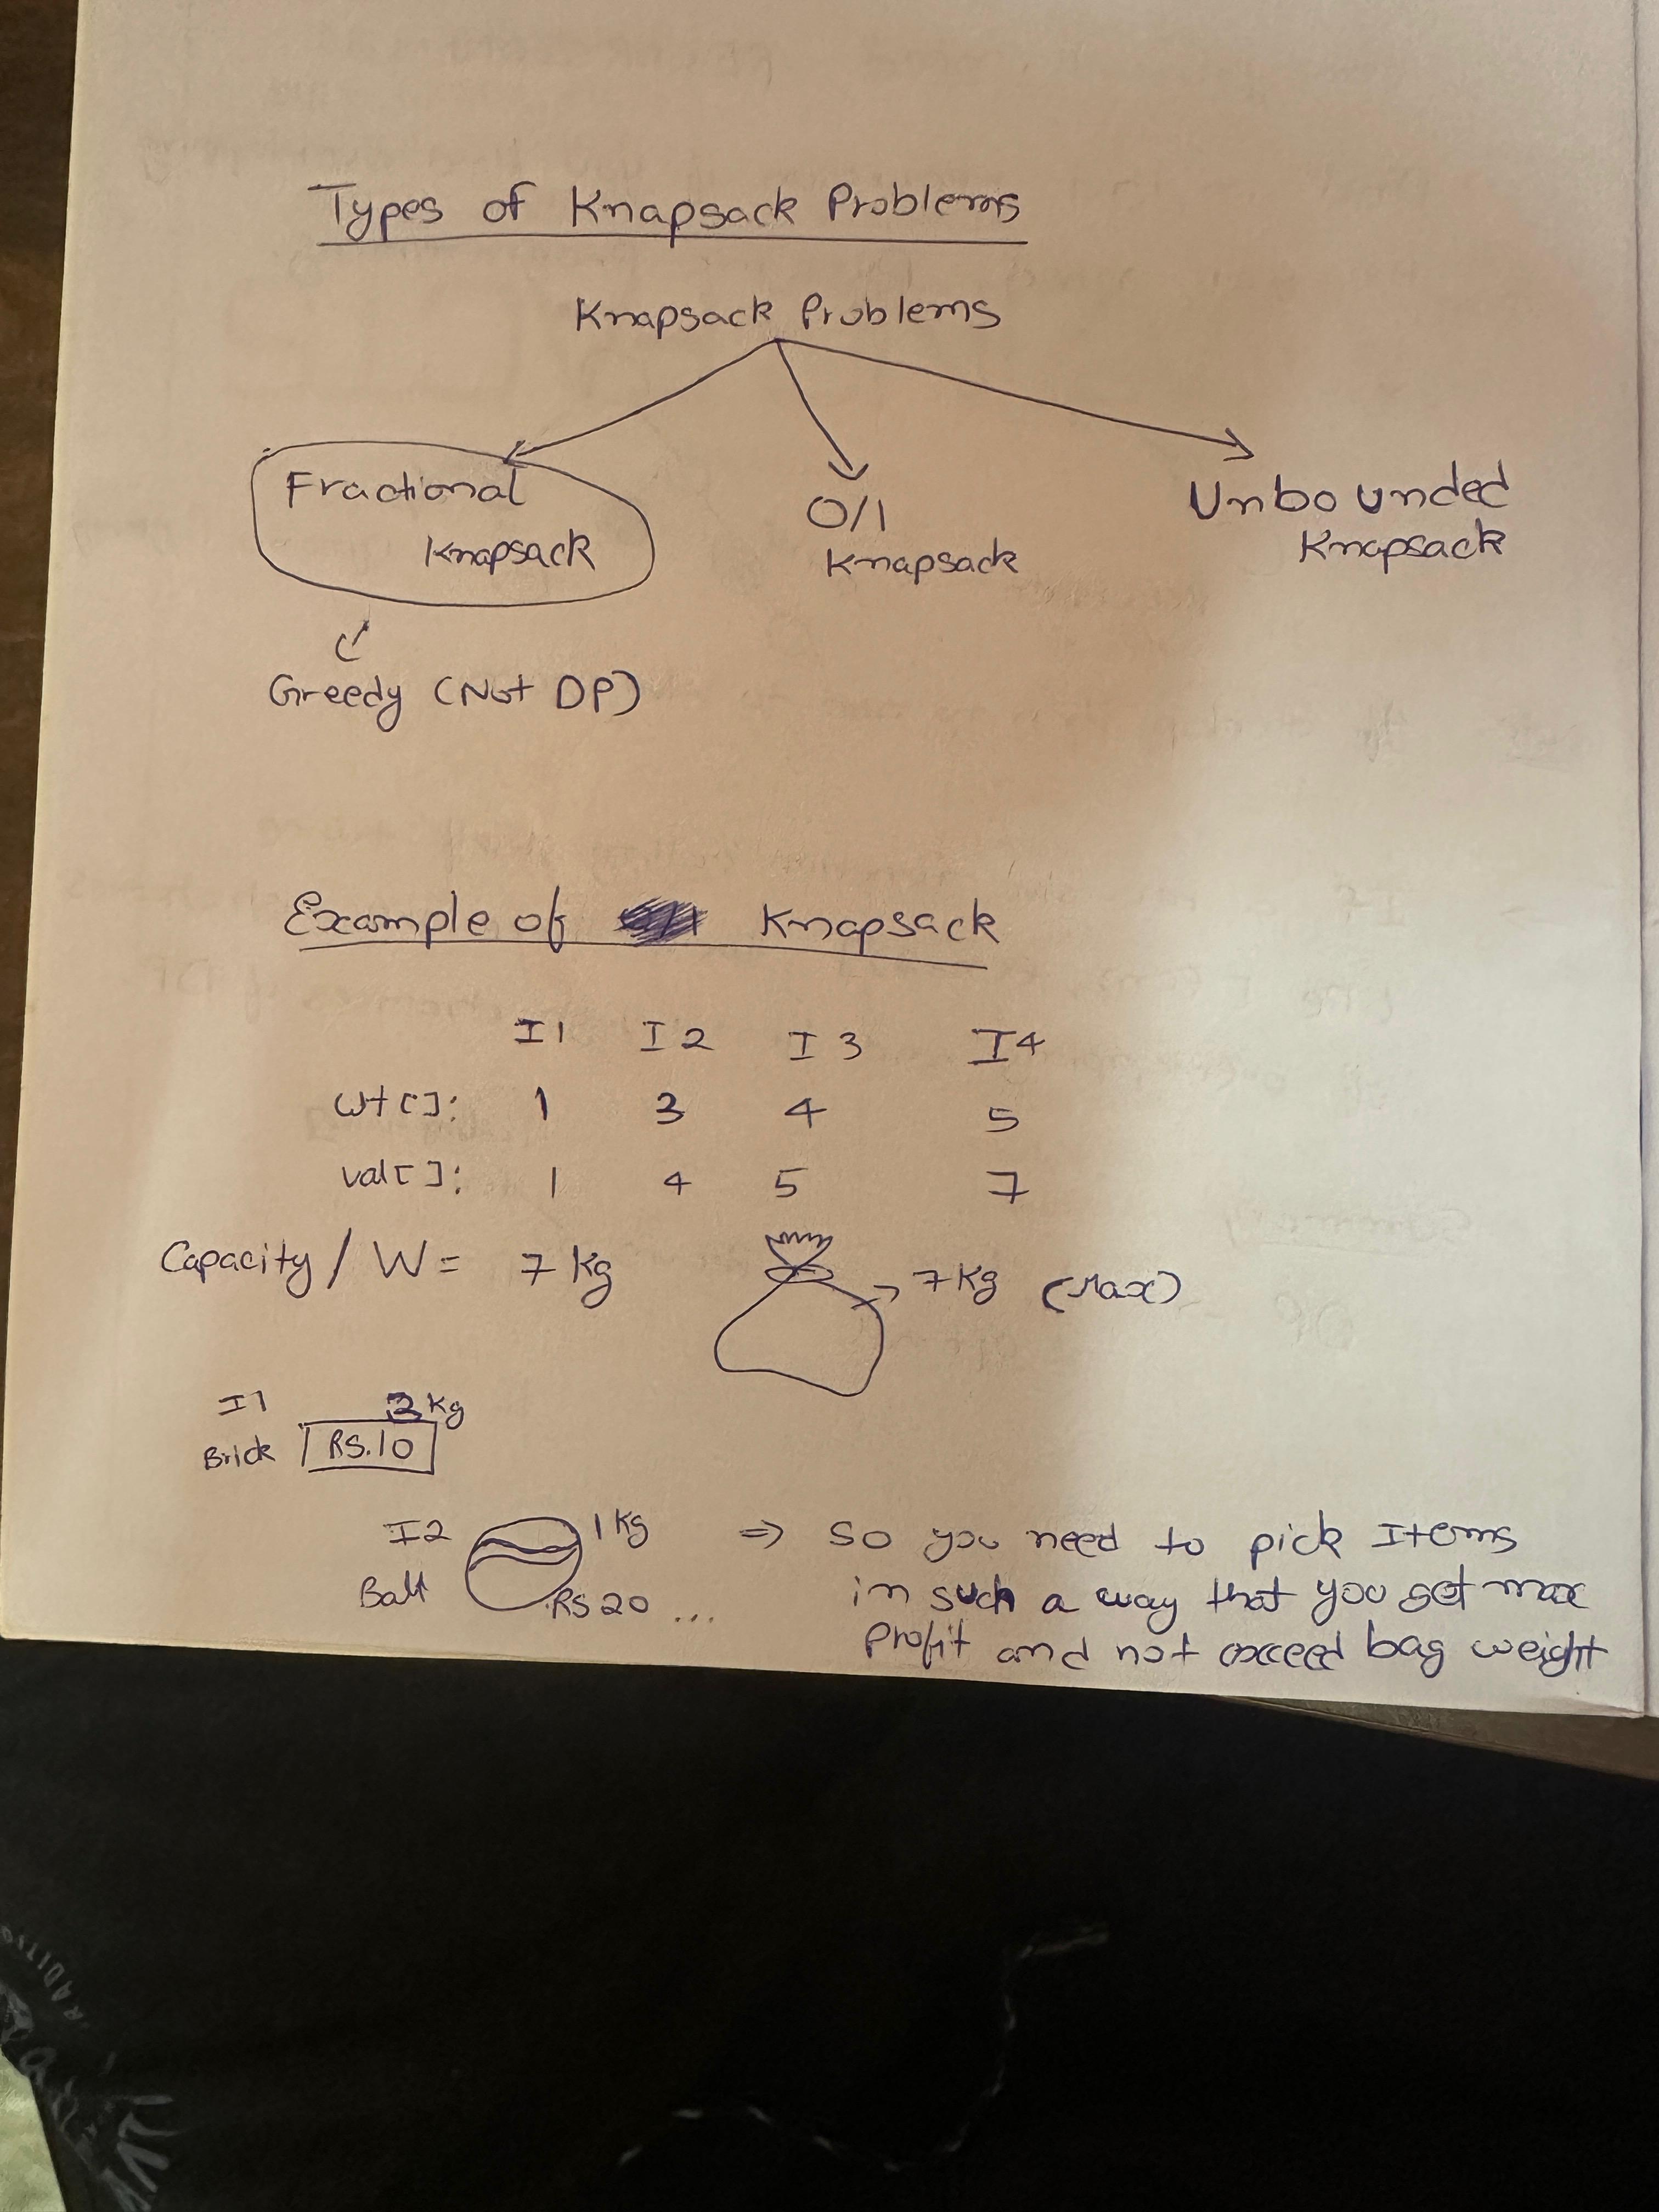 Types of Knapsack Problems
Knapsack Problems
Fractional Knapsack
0/1 Knapsack
Unbounded Knapsack
Greedy (Not DP)
Example of Knapsack
I1 I2 I3 I4
wt[]: 1 3 4 5
val[]: 1 4 5 7
Capacity / W = 7 Kg
7 Kg (Max)
I1 3 Kg
Brick RS.10
I2 1 Kg
Ball RS 20 ...
=> So you need to pick Items
in such a way that you get max
Profit and not exceed bag weight